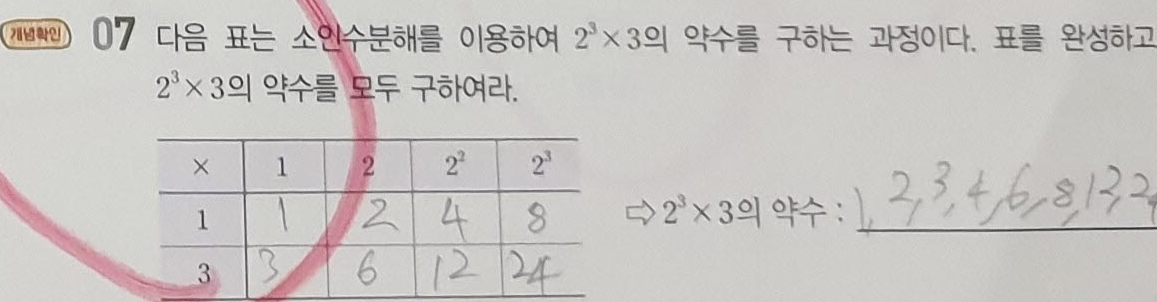 개념확인 07 다음 표는 소인수분해를 이용하여 2³×3의 약수를 구하는 과정이다. 표를 완성하고
2³×3의 약수를 모두 구하여라.
× 1 2 2² 2³
1 1 2 4 8
⇨ 2³×3의 약수 : 1, 2, 3, 4, 6, 8, 12, 24
3 3 6 12 24